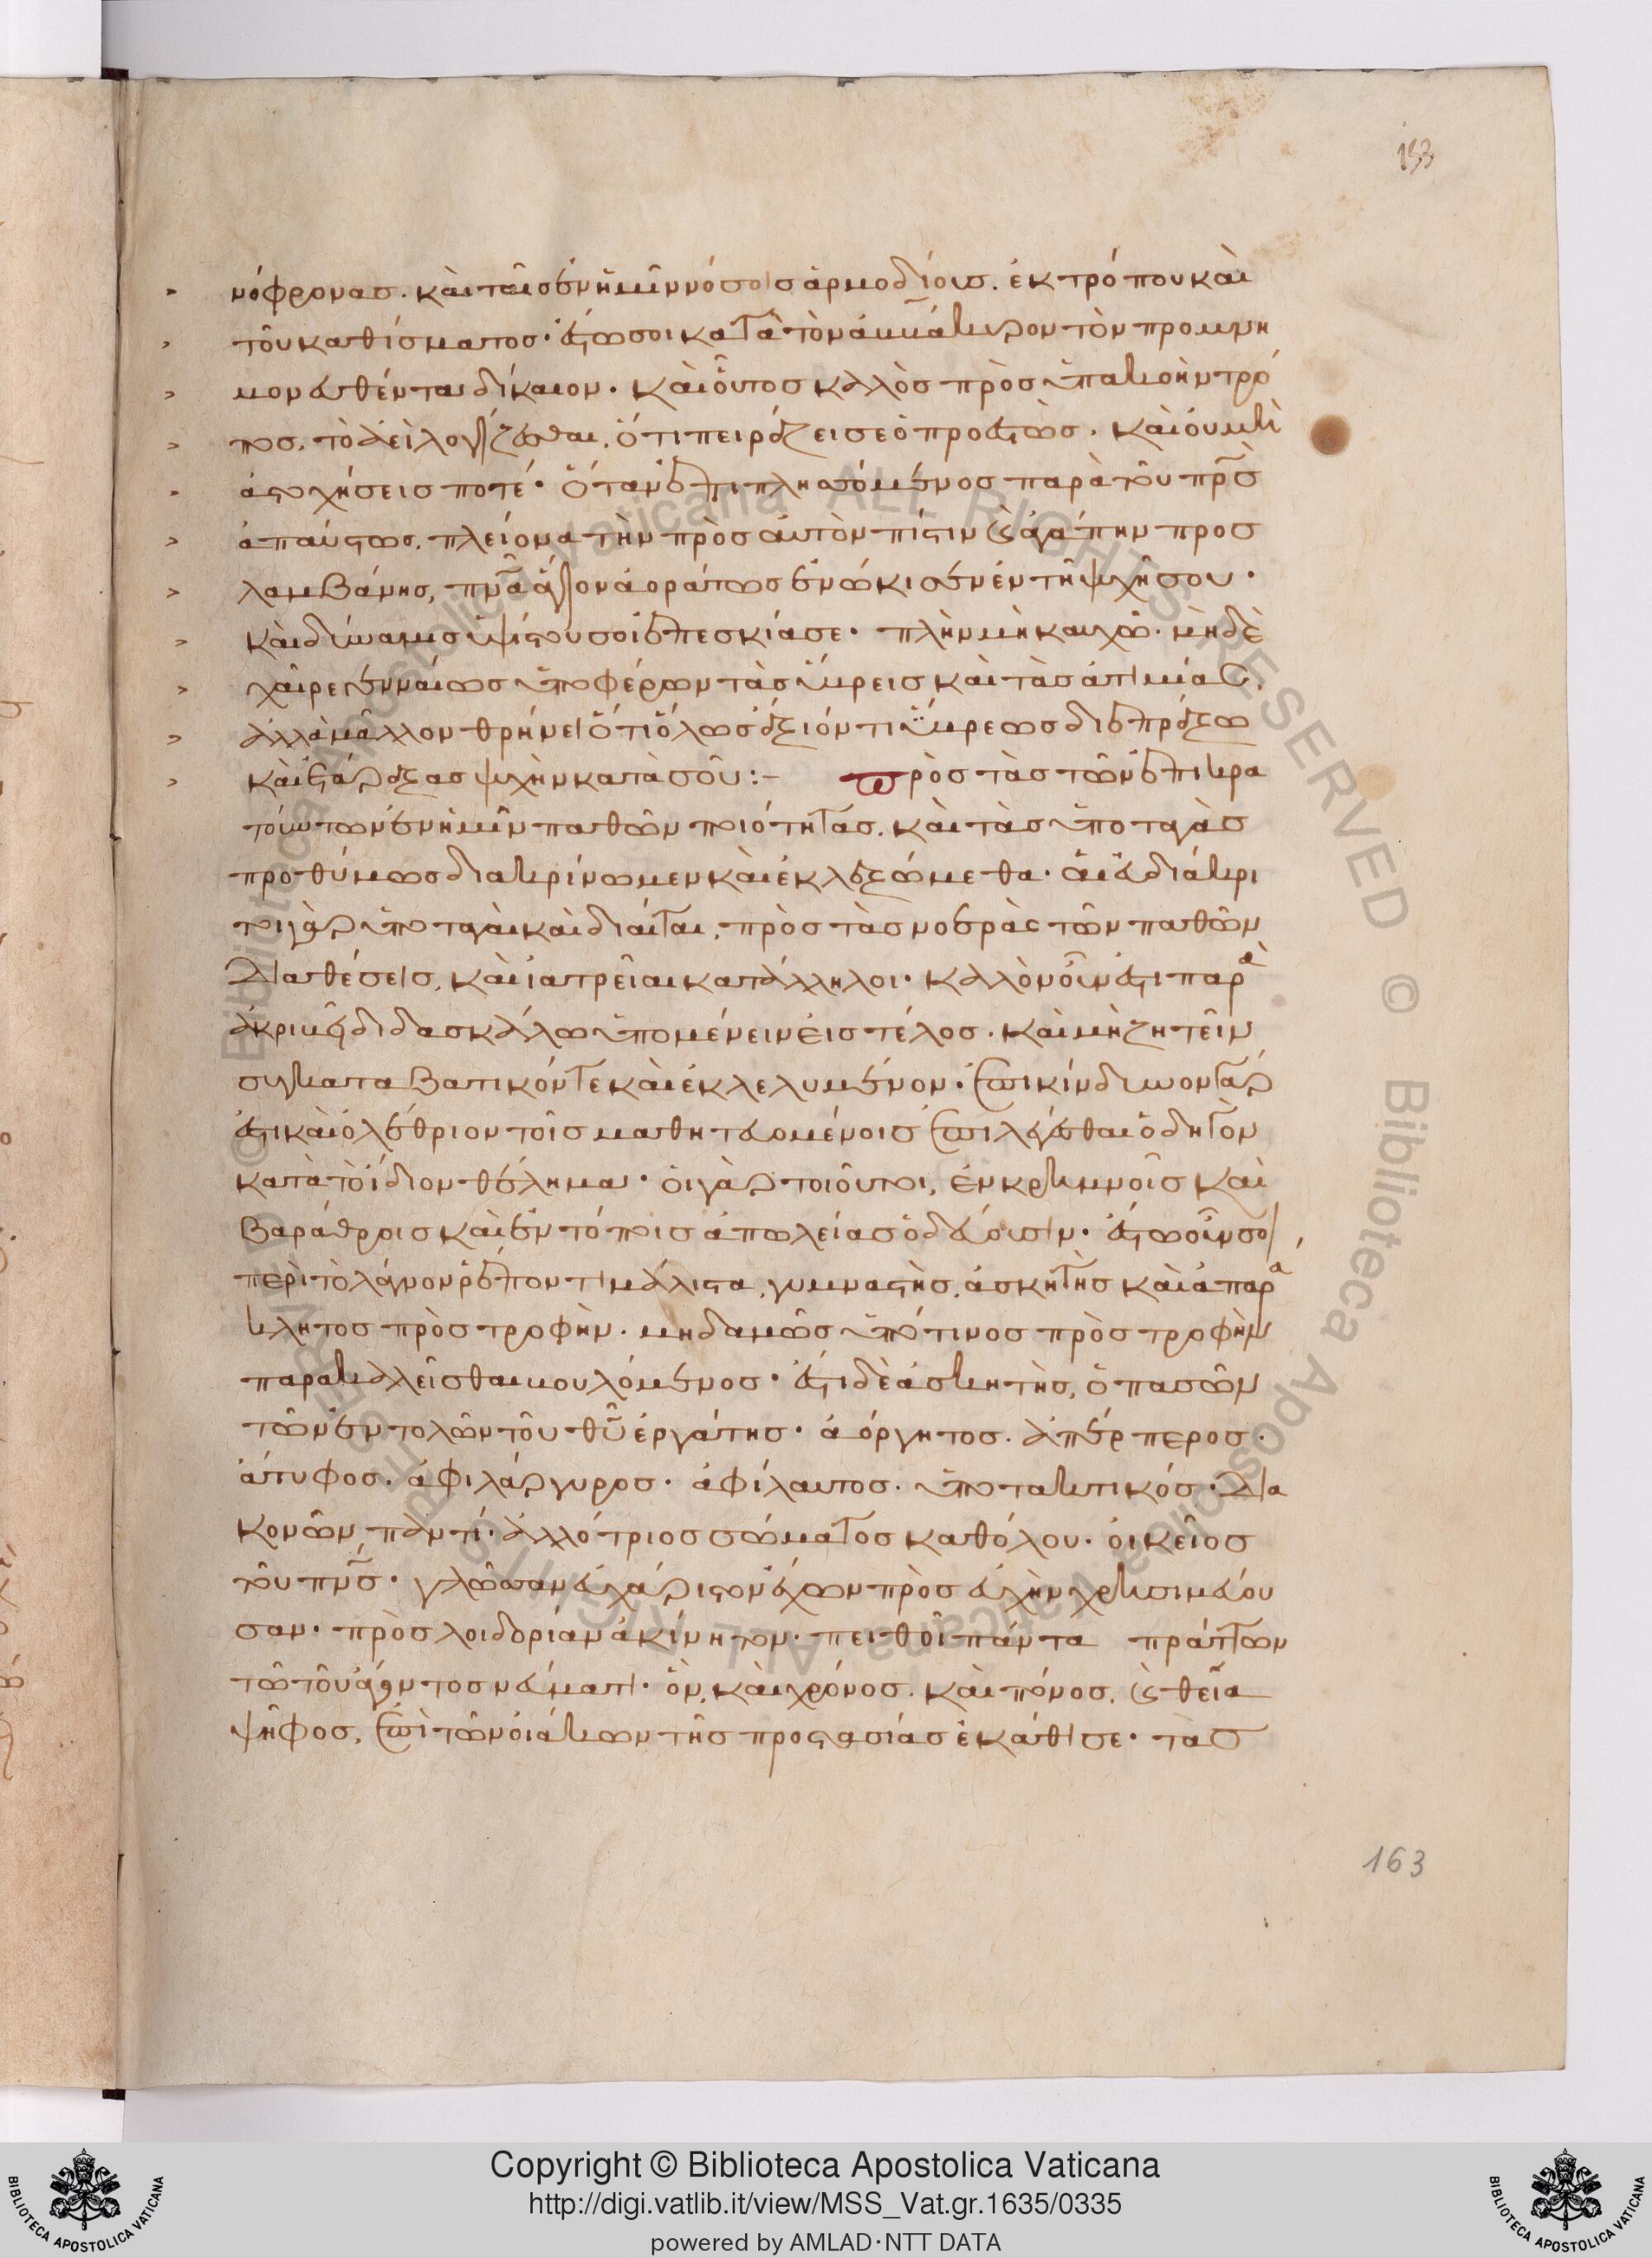 133
νόφρονας. καὶ ταῖς ἐν ἡμῖν νόσοις ἁρμοδίους. ἐκ τρόπου καὶ
τοῦ καθίσματος· ἔστω σοι κατὰ τὸν ἀββάκυρον τὸν προμνη
μονευθέντα δίκαιον. καὶ οὗτος καλὸς πρὸς ὑπακοὴν τρό
πος. τὸ ἀεὶ λογίζεσθαι. ὅτι πειράζει σε ὁ προεστώς. καὶ οὐ μὴ
ἀστοχήσεις ποτέ· ὅταν ἐπιπλησσόμενος παρὰ τοῦ πρς
ἀπαύστως. πλείονα τὴν πρὸς αὐτὸν πίστιν καὶ ἀγάπην προσ
λαμβάνης, πνα ἅγιον ἀοράτως ἐνώκισεν ἐν τῇ ψυχῇ σου·
καὶ δύναμις ὑψίστου σοι ἐπεσκίασε· πλὴν μὴ καυχῶ. μηδὲ
χαῖρε γενναίως ὑποφέρων τὰς ὕβρεις καὶ τὰς ἀτιμίας.
ἀλλὰ μᾶλλον θρήνει ὅτι ὅλως ἄξιόν τι ὕβρεως διεπράξω
καὶ ἐτάραξας ψυχὴν κατὰ σοῦ:– πρὸς τὰς τῶν ἐπικρα
τούντων ἐν ἡμῖν παθῶν ποιότητας. καὶ τὰς ὑποταγὰς
προθύμως διακρίνωμεν καὶ ἐκλεξώμεθα· αἱ εὐδιάκρι
τοι γὰρ ὑποταγαὶ καὶ δίαιται, πρὸς τὰς νοερὰς τῶν παθῶν
διαθέσεις, καὶ ἰατρεῖαι κατάλληλοι· καλὸν οὖν ἐστι παρὰ
ἀκριβῇ διδασκάλω ὑπομένειν εἰς τέλος. καὶ μὴ ζητεῖν
συγκαταβατικόν τε καὶ ἐκλελυμένον· ἐπικίνδυνον γάρ
ἐστι καὶ ὀλέθριον τοῖς μαθητευομένοις ἐπιλέγεσθαι ὁδηγὸν
κατὰ τὸ ἴδιον θέλημα· οἱ γὰρ τοιοῦτοι, ἐν κρημνοῖς καὶ
βαράθροις καὶ ἐν τόποις ἀπωλείας ὁδεύουσιν· ἔστω οὖν σοι
περὶ τὸ λάχανον ῥέποντι μάλιστα, γυμναστὴς, ἀσκητὴς καὶ ἀπαρά
κλητος πρὸς τροφήν. μηδαμῶς ὑπό τινος πρὸς τροφὴν
παρακαλεῖσθαι βουλόμενος· ἔστι δὲ ἀσκητὴς, ὁ πασῶν
τῶν ἐντολῶν τοῦ θυ ἐργάτης· ἀόργητος. ἀπέρπερος·
ἄτυφος. ἀφιλάργυρος· ἀφίλαυτος. ὑποτακτικός· δια
κονῶν παντί· ἀλλότριος σώματος καθόλου· οἰκεῖος
τοῦ πνς· γλῶσσαν εὐχάριστον ἔχων πρὸς εὐχὴν χρησιμεύου
σαν· πρὸς λοιδορίαν ἀκίνητον· πειθοῖ πάντα πράττων
τῶ τοῦ ἄγοντος νεύματι· ὃν, καὶ χρόνος. καὶ πόνος, καὶ θεία
ψῆφος, ἐπὶ τῶν οἰάκων τῆς προστασίας ἐκάθισε· τὰς
163
Copyright © Biblioteca Apostolica Vaticana
http://digi.vatlib.it/view/MSS_Vat.gr.1635/0335
powered by AMLAD·NTT DATA
BIBLIOTECA APOSTOLICA VATICANA
BIBLIOTECA APOSTOLICA VATICANA